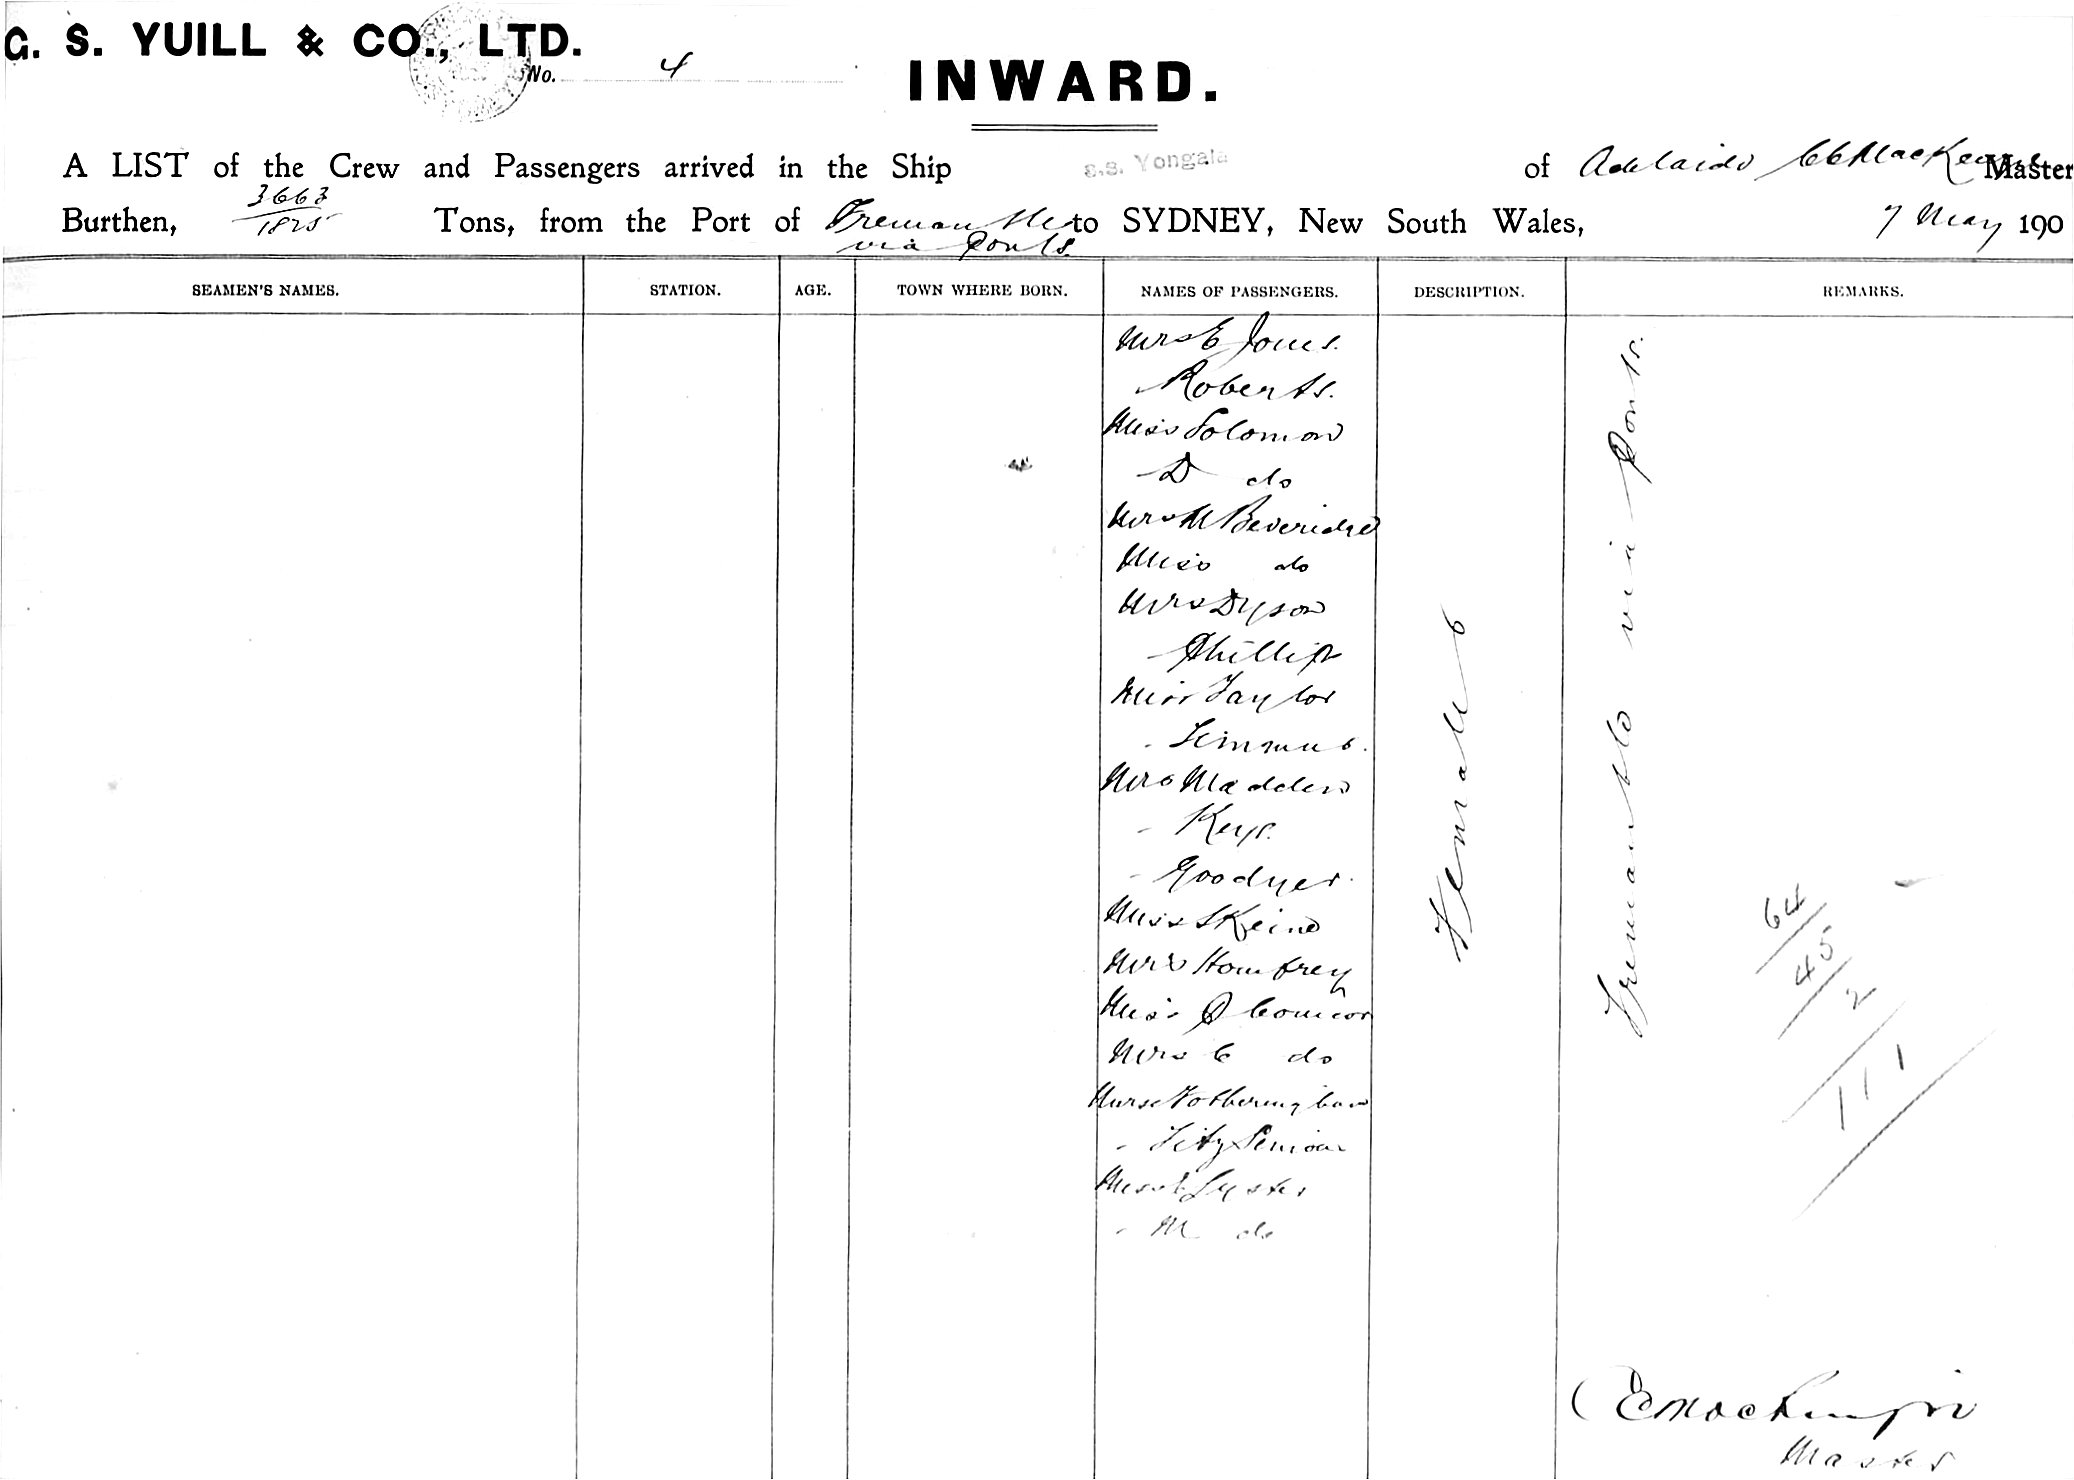 G. S. YUILL & CO., LTD.
No. 4
INWARD.
A LIST of the Crew and Passengers arrived in the Ship s.s. Yongala of Adelaide Master
Burthen, 3663/1825 Tons, from the Port of Fremantle to SYDNEY, New South Wales, 7 May 190
via Ports.
SEAMEN'S NAMES. STATION. AGE. TOWN WHERE BORN. NAMES OF PASSENGERS. DESCRIPTION. REMARKS.
Mrs E Jones.
Roberts.
Miss Solomon
- D do
Mrs M Beveridge
Miss do
Mrs Dyson
- Phillip
Miss Taylor
- Timmns.
Mrs Madden
- Keys.
- Goodyer.
Miss Skeine
Mrs Homfrey
Miss P Connor
Mrs C do
Nurse Fotheringham
-
Miss Lyster
- M do
Female
Fremantle via Ports.
64
45
2
111
Master